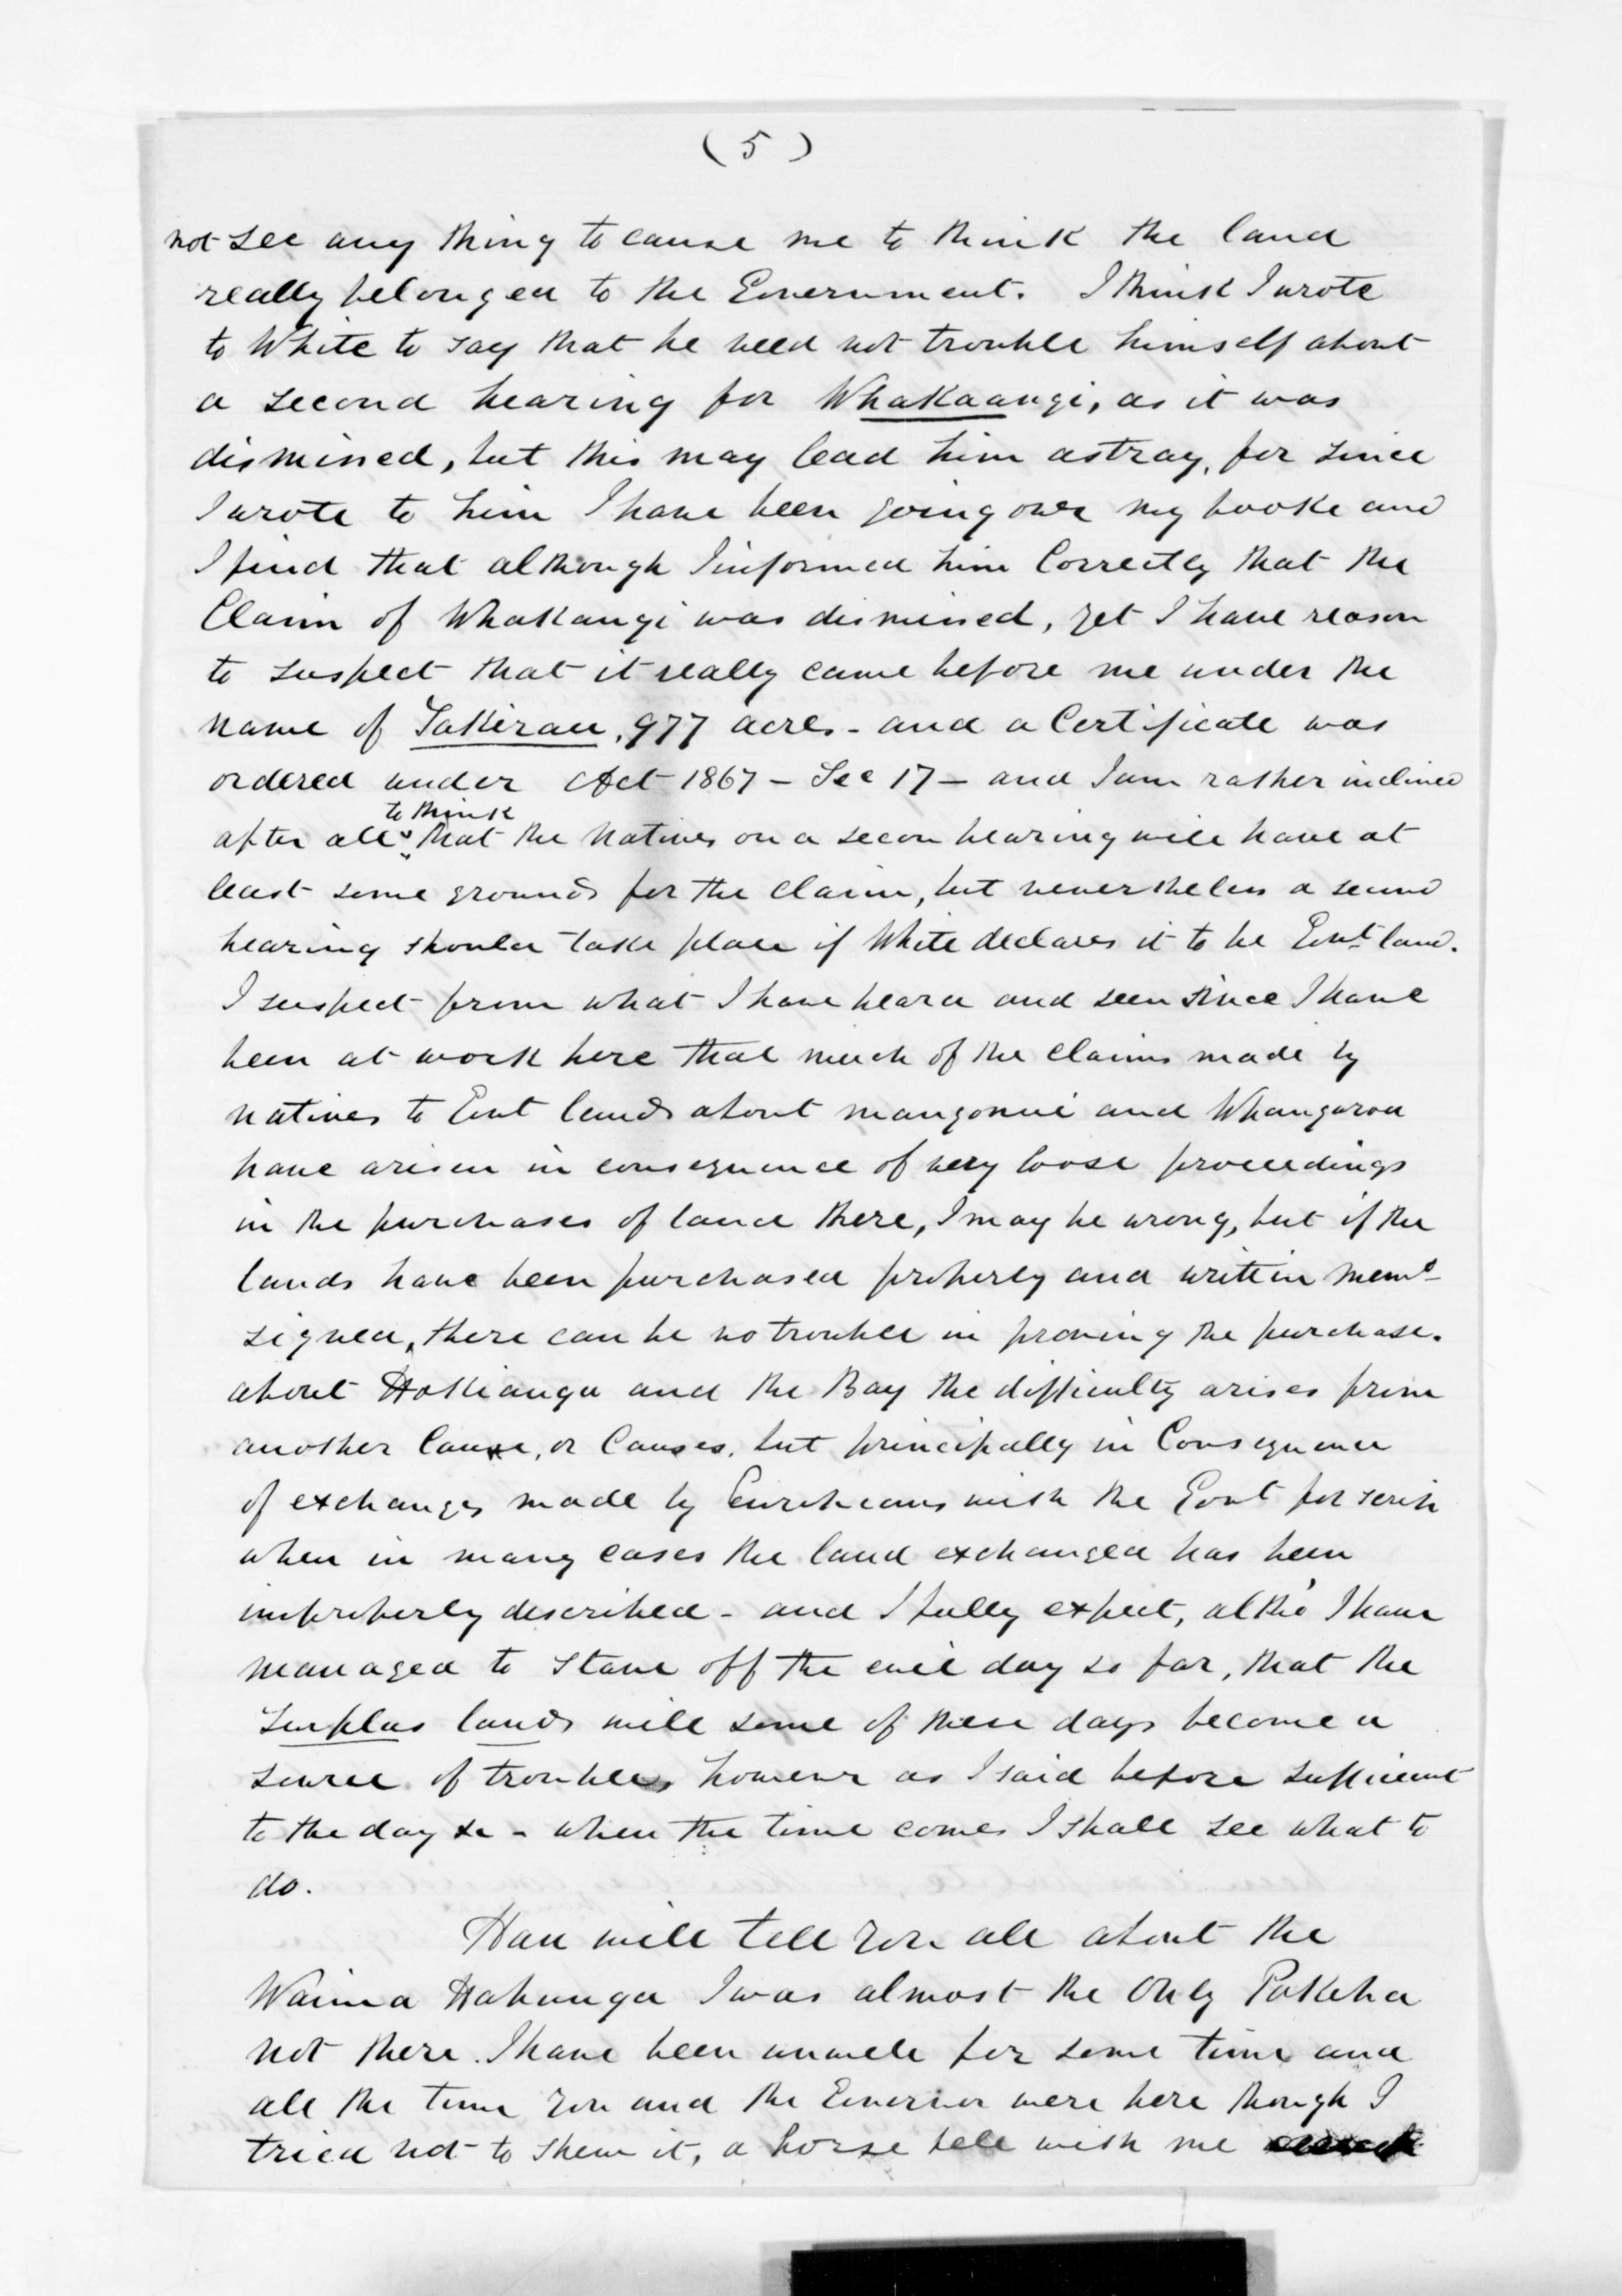 (5)
not see any thing to cause me to think the land
really belonged to the Government. I think I wrote
to White to say that he need not trouble himself about
a second hearing for Whakaangi, as it was
dismissed, but this may lead him astray, for since
I wrote to him I have been going over my books and
I find that although I informed him Correctly that the
Claim of Whakangi was dismissed, yet I have reason
to suspect that it really came before me under the
name of Takerau, 977 acres - and a Certificate was
ordered under Act 1867 - Sec 17 - and I am rather inclined
to think
after all that the Natives on a secon hearing will have at
least some grounds for the claim, but nevertheless a second
hearing should take place if White declares it to be Govt land.
I suspect from what I have heard and seen since I have
been at work here that much of the claims made by
natives to Govt lands about mangonui and Whangaroa
have arisen in consequence of very loose proceedings
in the purchases of land there, I may be wrong, but if the
lands have been purchased properly and written memo
signed, there can be no trouble in proving the purchase.
about Hokianga and the Bay the difficulty arises from
another Cause, or Causes, but principally in Consequence
of exchanges made by Europeans with the Govt for scrip
when in many cases the land exchanged has been
improperly described - and I fully expect, altho' I have
managed to stave off the evil day so far, that the
surplus lands will some of these days become a
source of trouble, however as I said before sufficient
to the day &c - when the time comes I shall see what to
do.
Hau will tell you all about the
Waima Hahunga I was almost the Only Pakeha
not there. I have been unwell for some time and
all the time you and the Governor were here though I
tried not to shew it, a horse fell with me